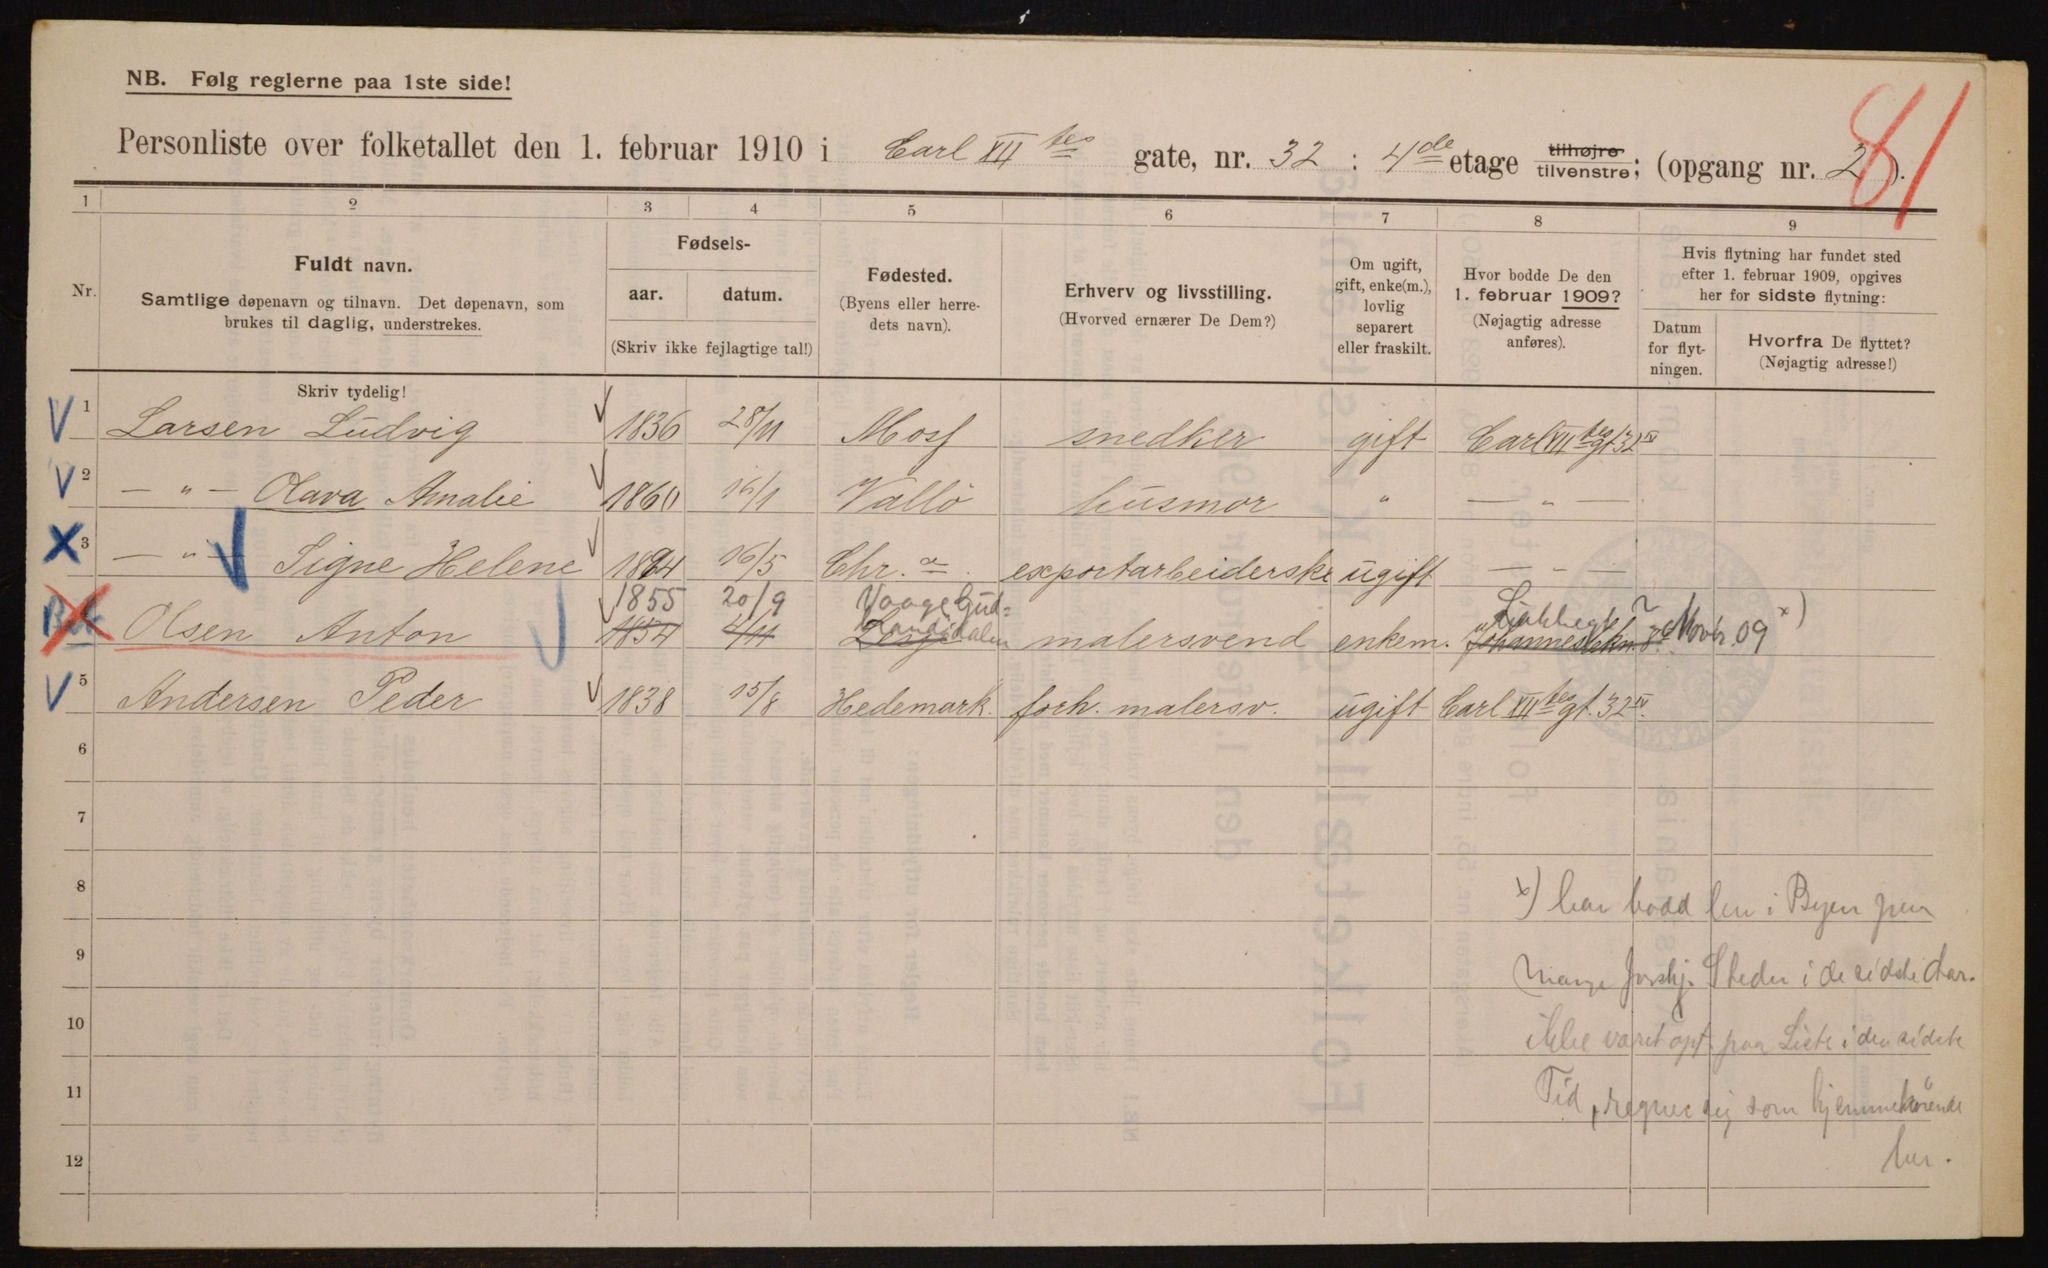 NB. Følg reglerne paa 1ste side!
81
Personliste over folketallet den 1. februar 1910 i Carl XII tes gate, nr. 32 : 4de etage tilhøjre tilvenstre; (opgang nr. 2).
1 2 3 4 5 6 7 8 9
Nr.
Fuldt navn.
Samtlige døpenavn og tilnavn. Det døpenavn, som
brukes til daglig, understrekes.
Skriv tydelig!
Fødsels-
aar. datum.
(Skriv ikke fejlagtige tal!)
Fødested.
(Byens eller herre-
dets navn).
Erhverv og livsstilling.
(Hvorved ernærer De Dem?)
Om ugift,
gift, enke(m.),
lovlig
separert
eller fraskilt.
Hvor bodde De den
1. februar 1909?
(Nøjagtig adresse
anføres).
Hvis flytning har fundet sted
efter 1. februar 1909, opgives
her for sidste flytning:
Datum
for flyt-
ningen.
Hvorfra De flyttet?
(Nøjagtig adresse!)
V 1 Larsen Ludvig 1836 28/11 Moss snedker gift Carl XII tes gt. 32 IV
V 2 — " — Olava Amalie 1860 /1 Vallö husmor " — " —
X 3 — " — Signe Helene 1894 16/5 Chr. a exportarbeiderske ugift — " —
1855 20/9 Vaage Gud=
brandsdalen
Olsen Anton 1854 4/11 malersvend enkem. Novbr. 09 x)
V 5 Andersen Peder 1838 15/8 Hedemark. forh. malersv. ugift Carl XII tes gt. 32 IV.
6
7
8
9
10
11
12
x) har bodd her i Byen paa
mange forskj. Steder i de sidste Aar.
ikke været opf. paa Liste i den sidste
Tid, regner sig som hjemmehørende
her.